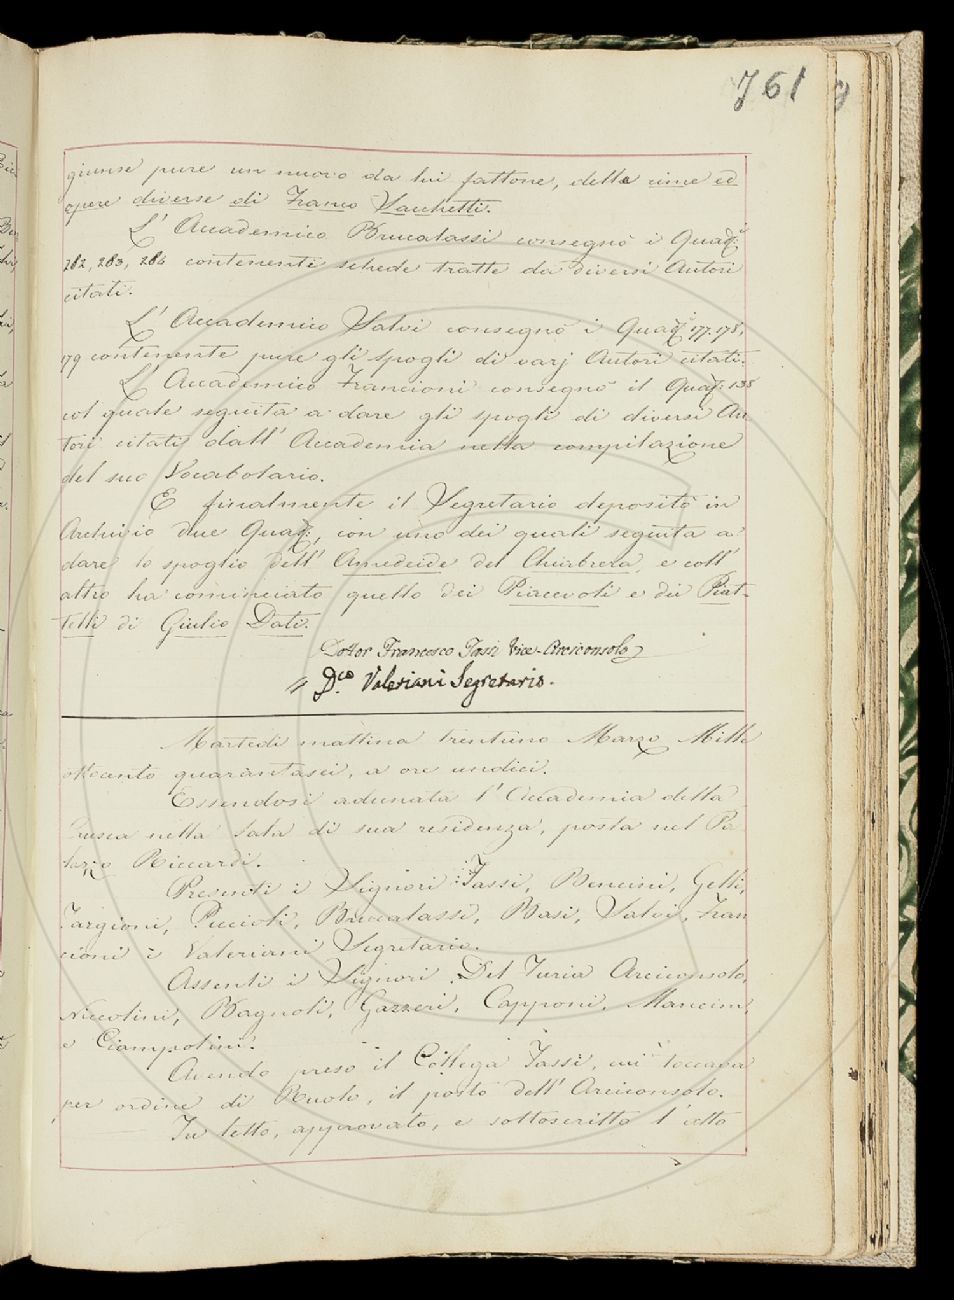 761
giunse pure un nuovo da lui fattone, delle rime ed
opere diverse di Franco Sacchetti.
L' Accademico Brucalassi consegnò i Quad.ⁱ
282, 283, 284 contenenti schede tratte da diversi Autori
citati.
L' Accademico Salvi consegnò i Quad.ⁱ 177. 178,
179 contenente pure gli spogli di varj Autori citati.
L' Accademico Francioni consegnò il Quad: 138
col quale seguita a dare gli spogli di diversi Au-
tori citati dall' Accademia nella compilazione
del suo Vocabolario.
E finalmente il Segretario depositò in
Archivio due Quad., con uno dei quali seguita a
dare lo spoglio dell' Amedeide del Chiabrera, e coll'
altro ha cominciato quello dei Piacevoli e dei Piat-
telli di Giulio Dati.
Dottor Francesco Tassi Vice-Arciconsolo
D.co Valeriani Segretario.
Martedì mattina trentuno Marzo Mille
ottocento quarantasei, a ore undici.
Essendosi adunata l' Accademia della
Crusca nella Sala di sua residenza, posta nel Pa
lazzo Riccardi.
Presenti i Signori: Tassi, Bencini, Gelli,
Targioni, Puccioli, Brucalassi, Basi, Salvi, Fran
cioni e Valeriani Segretario.
Assenti i Signori. Del Furia Arciconsolo,
Niccolini, Bagnoli, Gazzeri, Capponi, Mancini,
e Ciampolini.
Avendo preso il Collega Tassi, cui toccava
per ordine di Ruolo, il posto dell' Arciconsolo.
Fu letto, approvato, e sottoscritto l' atto